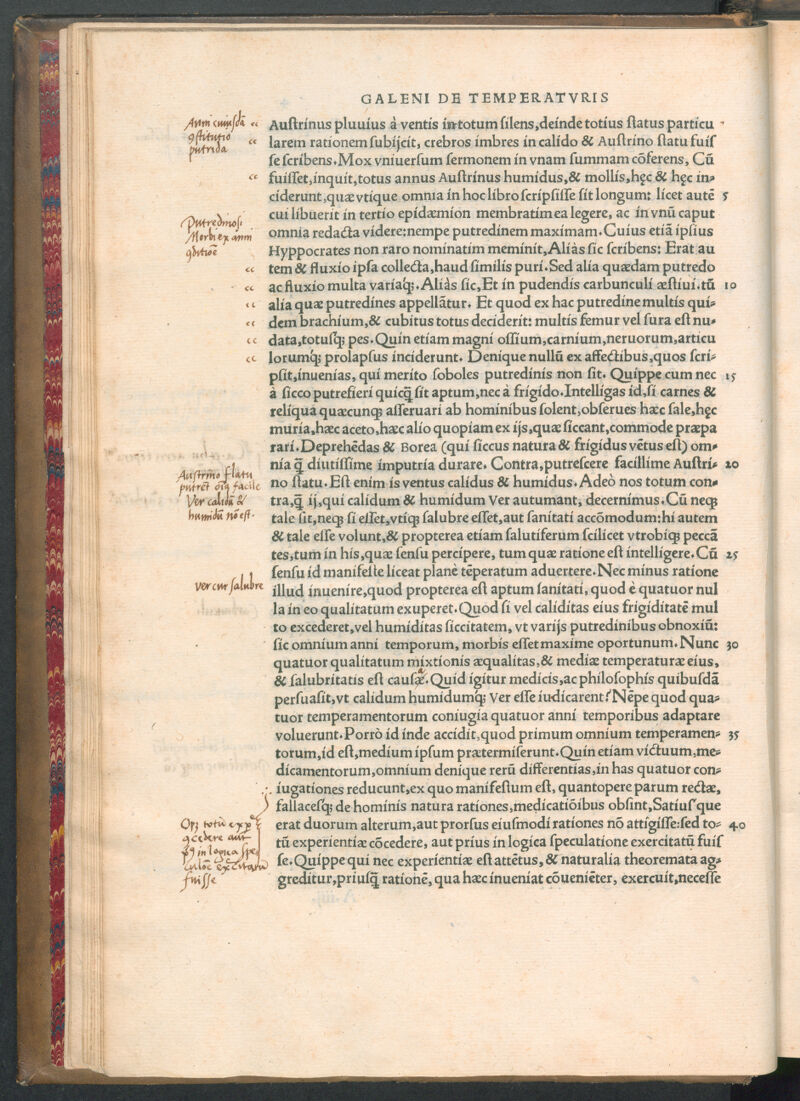 GALENI DE TEMPERATVRIS
Auſtrinus pluuius à ventis in totum ſilens,deinde totius ſtatus particu
larem rationem ſubijcit, crebros imbres in calido & Auſtrino ſtatu fuiſ
ſe ſcribens.Mox vniuerſum ſermonem in vnam ſummam cōferens, Cū
fuiſſet,inquit,totus annus Auſtrinus humidus,& mollis,hęc & hęc in⸗
ciderunt,quæ vtique omnia in hoc libro ſcripſiſſe ſit longum: licet autē 5
cui libuerit in tertio epidæmion membratim ea legere, ac in vnū caput
omnia redacta videre:nempe putredinem maximam.Cuius etiā ipſius
Hyppocrates non raro nominatim meminit,Aliàs ſic ſcribens: Erat au
tem & fluxio ipſa collecta,haud ſimilis puri.Sed alia quædam putredo
ac fluxio multa variaq;.Aliàs ſic,Et in pudendis carbunculi æſtiui.tū 10
alia quæ putredines appellātur. Et quod ex hac putredine multis qui⸗
dem brachium,& cubitus totus deciderit: multis femur vel ſura eſt nu⸗
data,totuſq; pes.Quin etiam magni oſſium,carnium,neruorum,articu
lorumq; prolapſus inciderunt. Denique nullū ex affectibus,quos ſcri⸗
pſit,inuenias, qui merito ſoboles putredinis non ſit. Quippe cum nec 15
à ſicco putrefieri quicq̄ ſit aptum,nec à frigido.Intelligas id,ſi carnes &
reliqua quæcunq; aſſeruari ab hominibus ſolent,obſerues hæc ſale,hęc
muria,hæc aceto,hæc alio quopiam ex ijs,quæ ſiccant,commode præpa
rari.Deprehēdas & Borea (qui ſiccus natura & frigidus vētus eſt) om⸗
nia q̄ diutiſſime imputria durare. Contra,putreſcere facillime Auſtri⸗ 20
no ſtatu.Eſt enim is ventus calidus & humidus.Adeò nos totum con⸗
tra,q̄ ij,qui calidum & humidum Ver autumant, decernimus.Cū neq;
tale ſit,neq; ſi eſſet,vtiq; ſalubre eſſet,aut ſanitati accōmodum:hi autem
& tale eſſe volunt,& propterea etiam ſalutiferum ſcilicet vtrobiq; peccā
tes,tum in his,quæ ſenſu percipere, tum quæ ratione eſt intelligere.Cū 25
ſenſu id manifeſte liceat planè tēperatum aduertere.Nec minus ratione
illud inuenire,quod propterea eſt aptum ſanitati, quod è quatuor nul
la in eo qualitatum exuperet.Quod ſi vel caliditas eius frigiditatē mul
to excederet,vel humiditas ſiccitatem, vt varijs putredinibus obnoxiū:
ſic omnium anni temporum, morbis eſſet maxime oportunum.Nunc 30
quatuor qualitatum mixtionis æqualitas,& mediæ temperaturæ eius,
& ſalubritatis eſt cauſæ.Quid igitur medicis,ac philoſophis quibuſdā
perſuaſit,vt calidum humidumq; Ver eſſe iudicarent?Nēpe quod qua⸗
tuor temperamentorum coniugia quatuor anni temporibus adaptare
voluerunt.Porrò id inde accidit,quod primum omnium temperamen⸗ 35
torum,id eſt,medium ipſum prætermiſerunt.Quin etiam victuum,me⸗
dicamentorum,omnium denique rerū differentias,in has quatuor con⸗
iugationes reducunt,ex quo manifeſtum eſt, quantopere parum rectæ,
fallaceſq; de hominis natura rationes,medicatiōibus obſint,Satiuſque
erat duorum alterum,aut prorſus eiuſmodi rationes nō attigiſſe:ſed to⸗ 40
tū experientiæ cōcedere, aut prius in logica ſpeculatione exercitatū fuiſ
ſe.Quippe qui nec experientiæ eſt attētus, & naturalia theoremata ag⸗
greditur,priuſq̄ rationē, qua hæc inueniat cōueniēter, exercuit,neceſſe
putrida
Putredinosi
Morbi ex anni
Austrino flatu
Ver calidū &
humidū nō est.
Ver cur salubre
fuisse